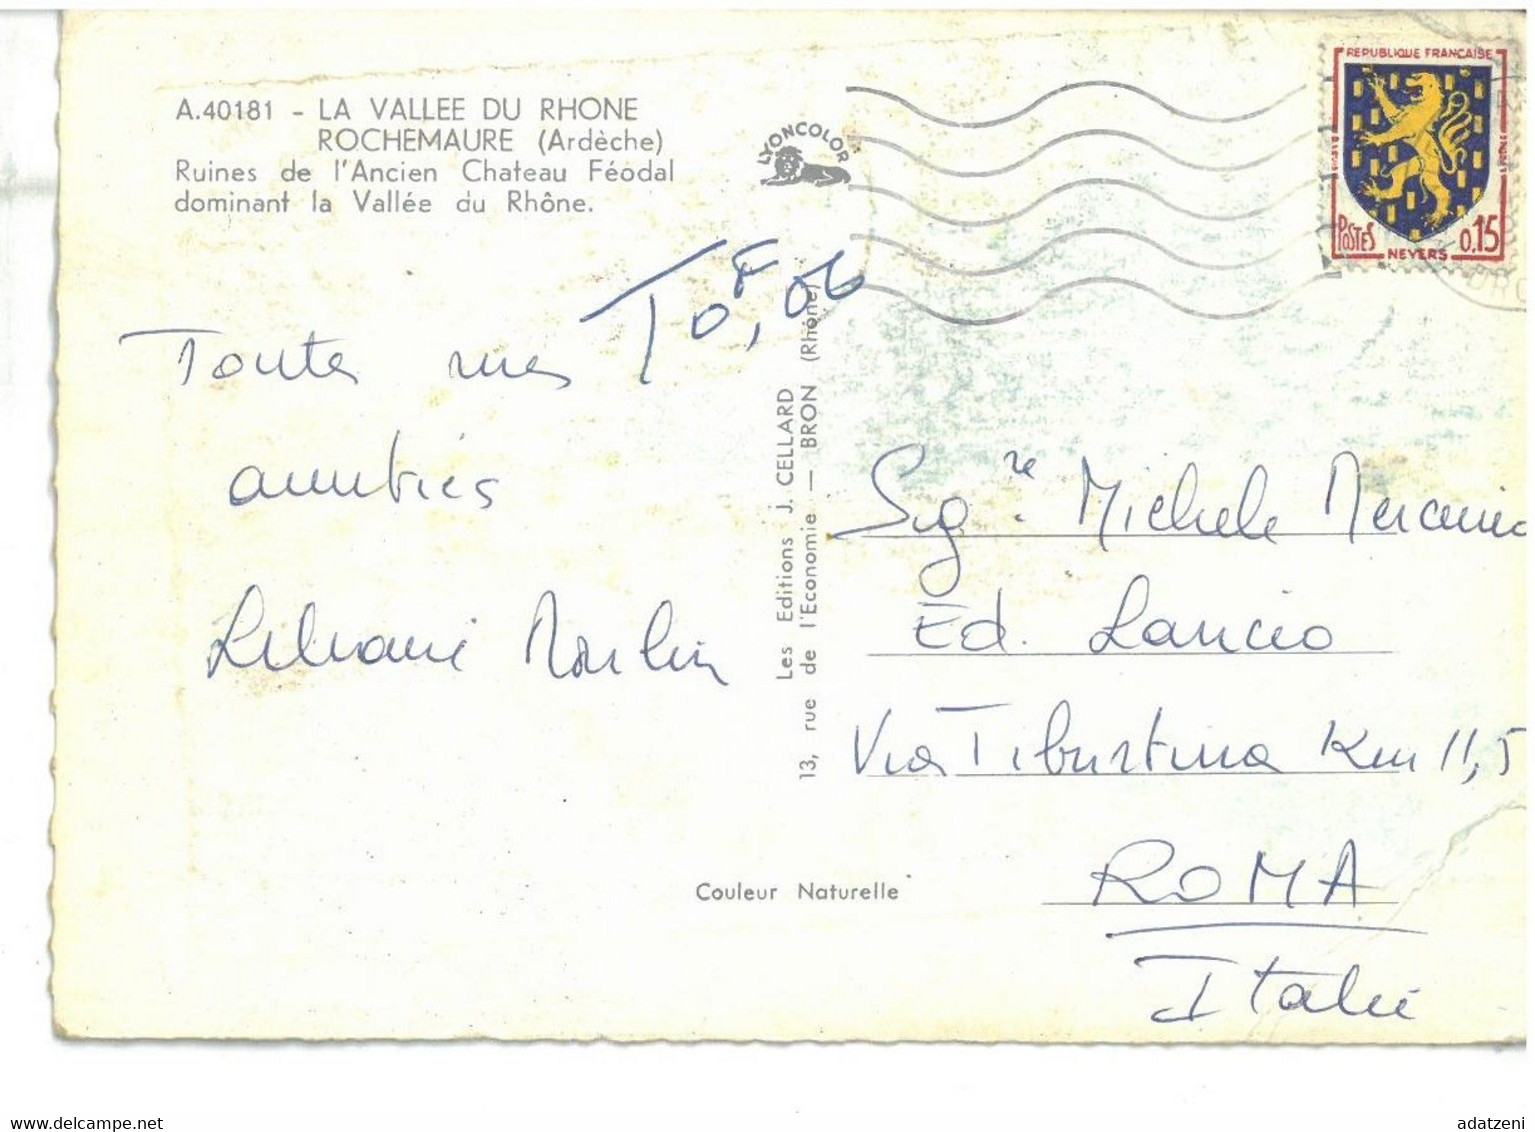 A.40181 - LA VALLEE DU RHONE
ROCHEMAURE (Ardèche)
Ruines de l'Ancien Chateau Féodal
dominant la Vallée du Rhône.
LYONCOLOR
REPUBLIQUE FRANÇAISE
POSTES
0,15
NEVERS
T 0,F06
Toutes mes
amitiés
Moulin
Les Editions J. CELLARD
13, rue de l'Economie — BRON (Rhône)
Sig.re Michele
Ed. Lancio
Via Tiburtina Km 11,5
ROMA
Italie
Couleur Naturelle
adatzeni
delcampe.net